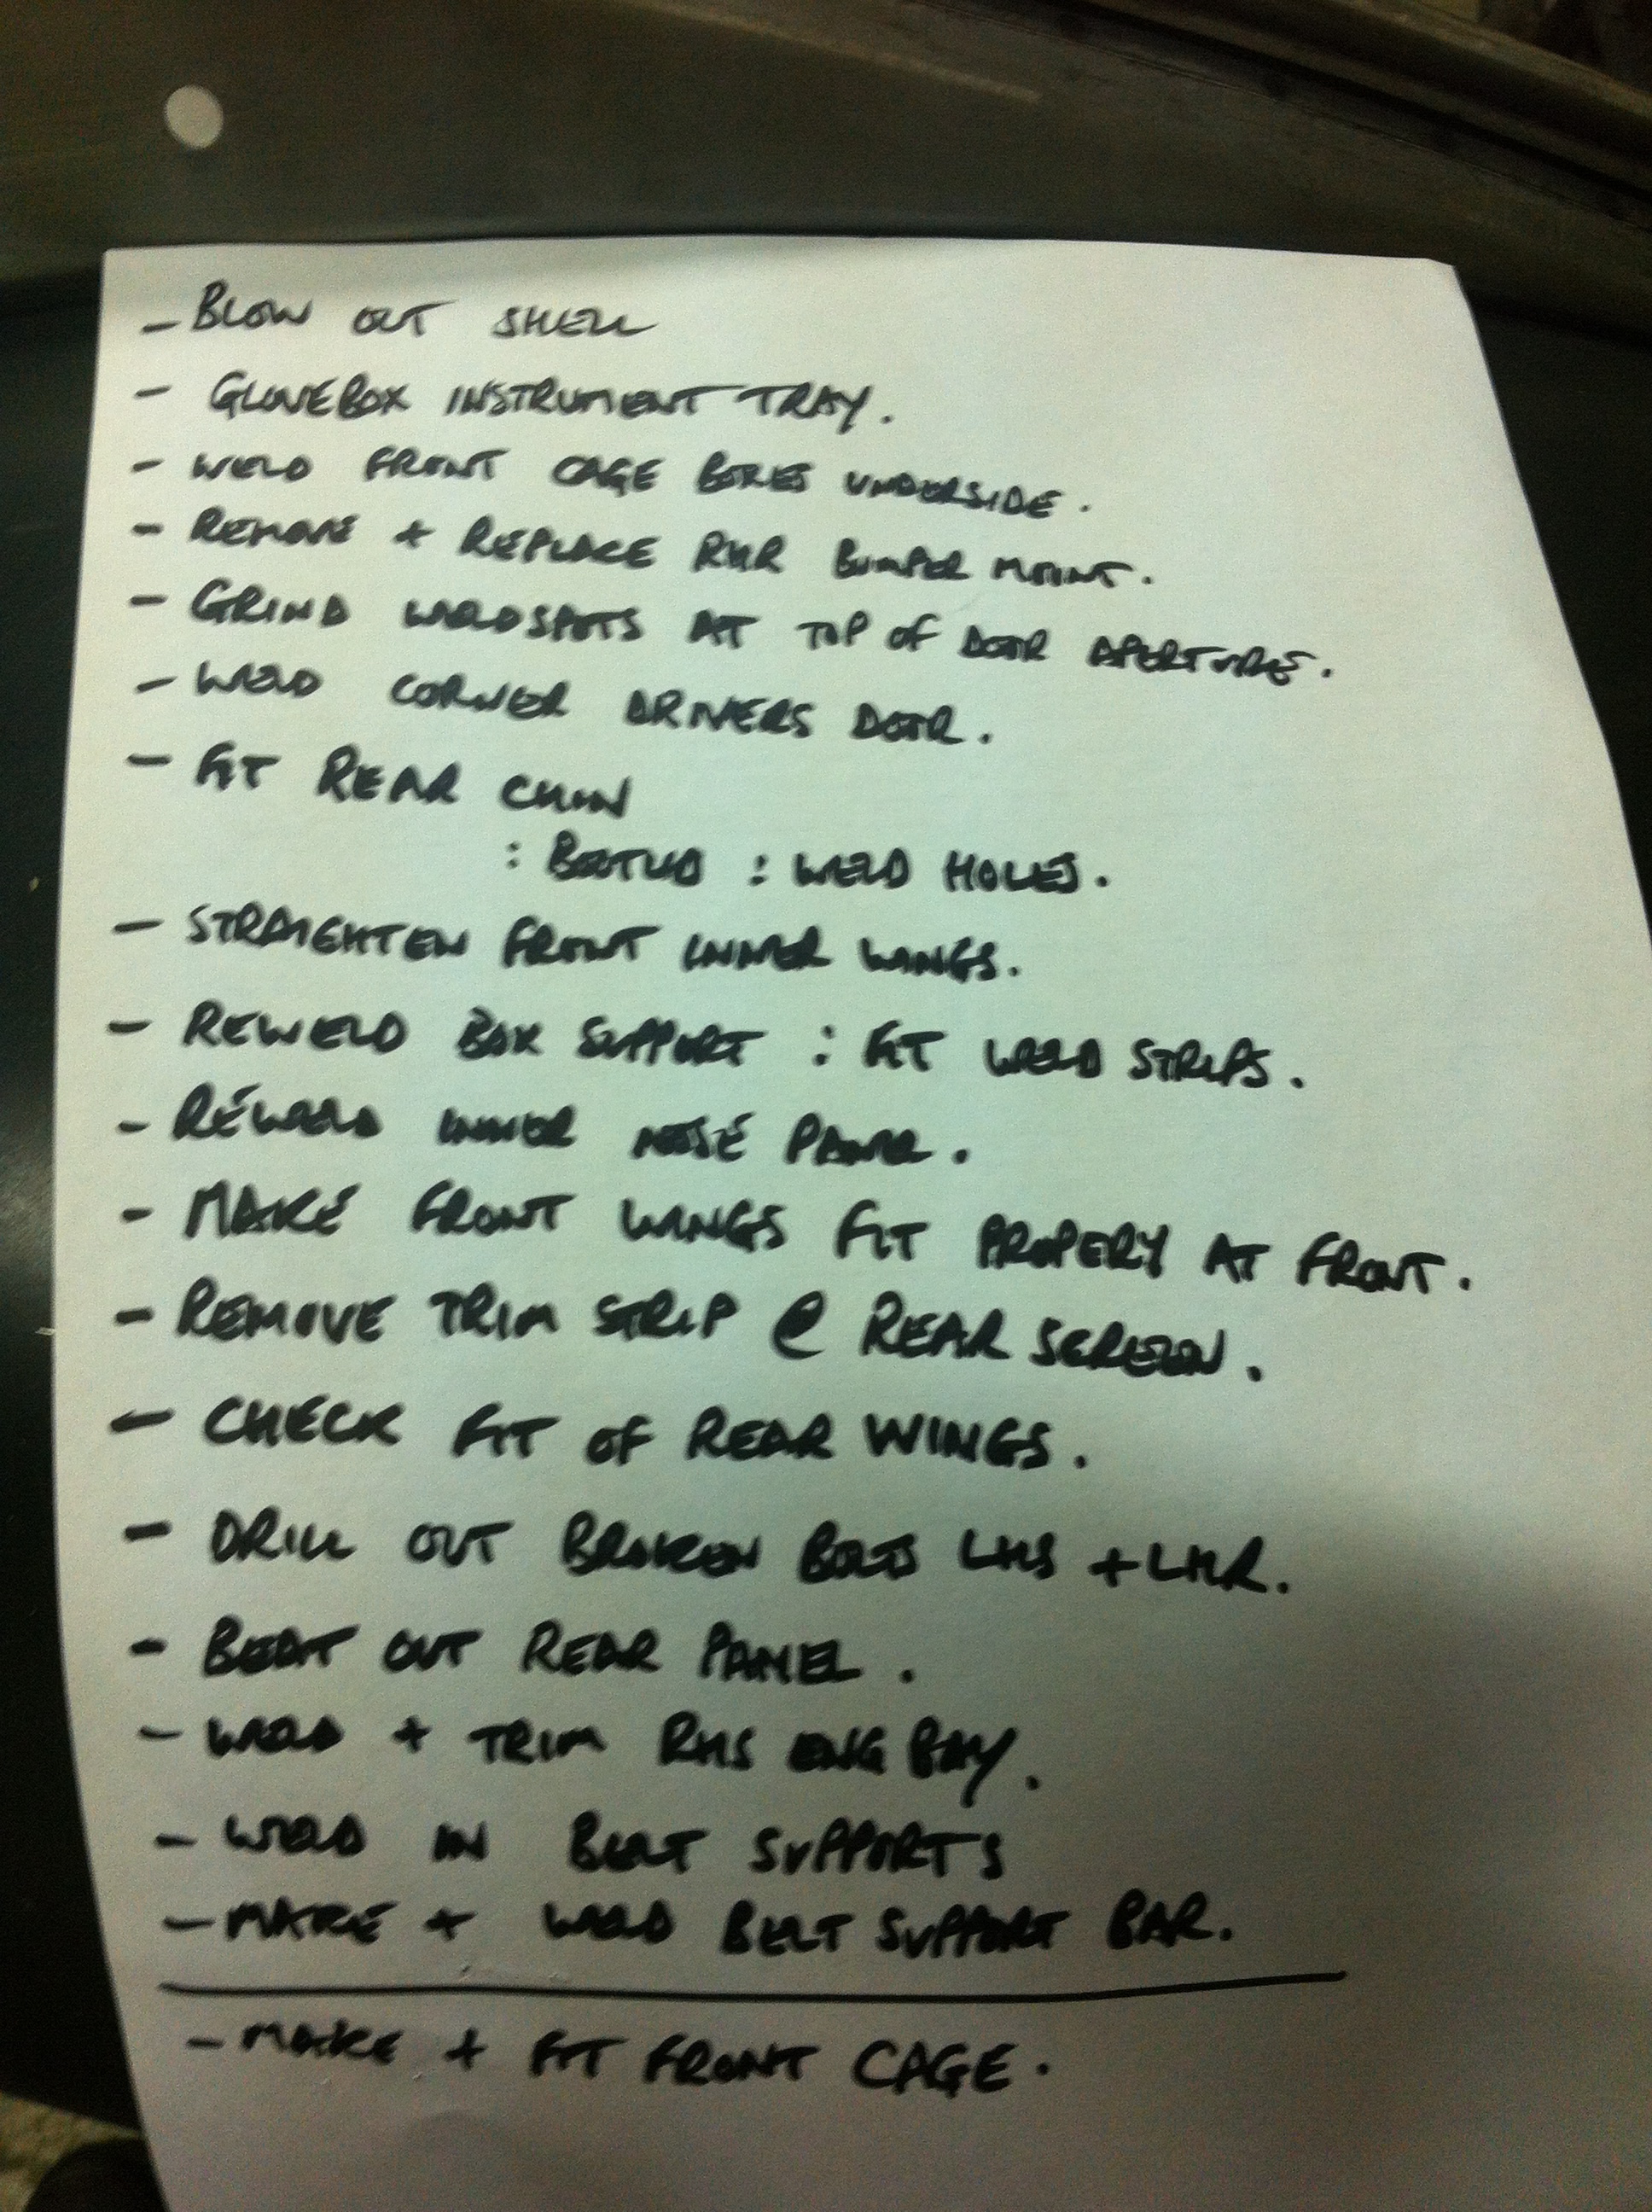 - BLOW OUT SHELL
- GLOVEBOX INSTRUMENT TRAY.
- WELD FRONT CAGE BOXES UNDERSIDE.
- REMOVE + REPLACE RHR BUMPER MOUNT.
- GRIND WELDSPOTS AT TOP OF DOOR APERTURE.
- WELD CORNER DRIVERS DOOR.
- FIT REAR CHIN
: : WELD HOLES.
- STRAIGHTEN FRONT INNER WINGS.
- REWELD BOX SUPPORT : FIT WELD STRIPS.
- REWELD INNER NOSE PANEL.
- MAKE FRONT WINGS FIT PROPERY AT FRONT.
- REMOVE TRIM STRIP @ REAR SCREEN.
- CHECK FIT OF REAR WINGS.
- DRILL OUT BROKEN BOLTS LHS + LHR.
- BEAT OUT REAR PANEL.
- WELD + TRIM RHS ENG BAY.
- WELD IN BELT SUPPORTS
- MAKE + WELD BELT SUPPORT BAR.
- MAKE + FIT FRONT CAGE.